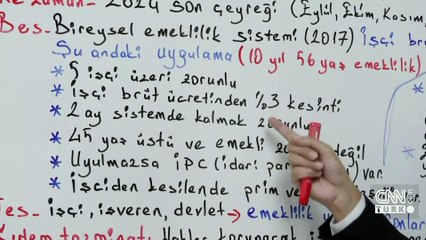 2024 son çeyreği (Eylül, Ekim, Kasım,
Bes- Bireysel emeklilik sistemi (2017) İşçi br
Şu andaki uygulama (10 yıl 56 yaş emeklilik)
* 5 işçi üzeri zorunlu
* İşçi brüt ücretinden %3 kesinti
* 2 ay sistemde kalmak zorunlu
* 45 yaş üstü ve emekli değil
* Uyulmazsa İPC (idari par var
* İşçiden kesilende prim ve
Tes- İşçi, işveren, devlet → emeklilik
CNN
TÜRK